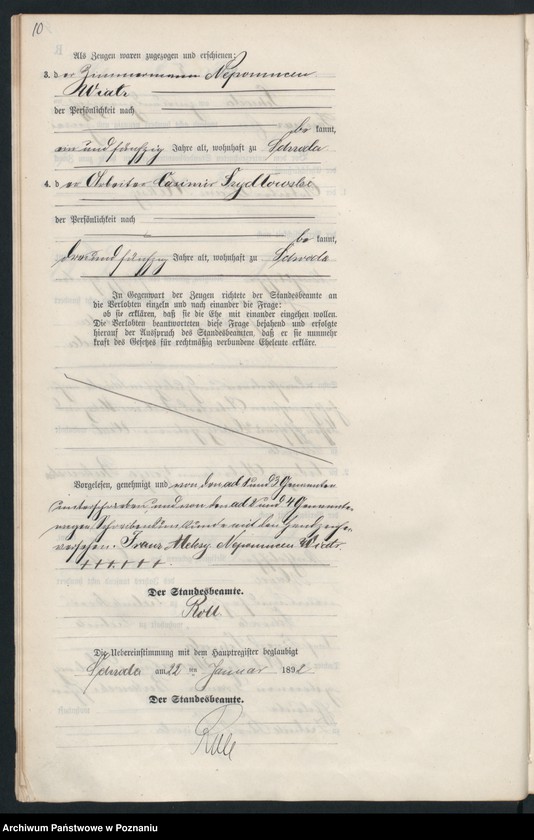 10
Als Zeugen waren zugezogen und erschienen:
3. d er Zimmermann Nepomucen
Wiatr
der Persönlichkeit nach
be kannt,
ein und fünfzig Jahre alt, wohnhaft zu Schroda
4. d er Arbeiter Casimir Szydłowski
der Persönlichkeit nach
be kannt,
drei und fünfzig Jahre alt, wohnhaft zu Schroda
In Gegenwart der Zeugen richtete der Standesbeamte an
die Verlobten einzeln und nach einander die Frage:
ob sie erklären, daß sie die Ehe mit einander eingehen wollen.
Die Verlobten beantworteten diese Frage bejahend und erfolgte
hierauf der Ausspruch des Standesbeamten, daß er sie nunmehr
kraft des Gesetzes für rechtmäßig verbundene Eheleute erkläre.
Vorgelesen, genehmigt und von den ad 1 und 3 Genannten
unterschrieben und von den ad 2 und 4 Genannten
wegen Schreibensunkunde mit den Handzeichen
versehen. Franz Nepomucen Wiatr
+++ +++.
Der Standesbeamte.
Roll
Die Uebereinstimmung mit dem Hauptregister beglaubigt
Schroda am 22 ten Januar 1892
Der Standesbeamte.
Roll
Archiwum Państwowe w Poznaniu